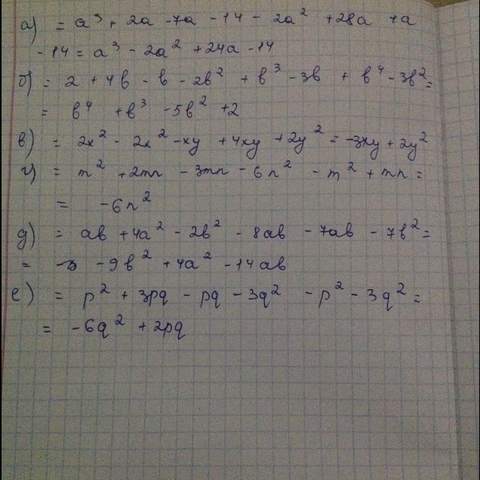 а) = a³ + 2a - 7a - 14 - 2a² + 28a + a
- 14 = a³ - 2a² + 24a - 14
б) = 2 + 4в - в - 2в² + в³ - 3в + в⁴ - 3в² =
= в⁴ + в³ - 5в² + 2
в) = 2x² - 2x² - xy + 4xy + 2y² = -3xy + 2y²
г) = m² + 2mn - 3mn - 6n² - m² + mn =
= - 6n²
д) = ab + 4a² - 2b² - 8ab - 7ab - 7b² =
= - 9b² + 4a² - 14ab
е) = p² + 3pq - pq - 3q² - p² - 3q² =
= -6q² + 2pq